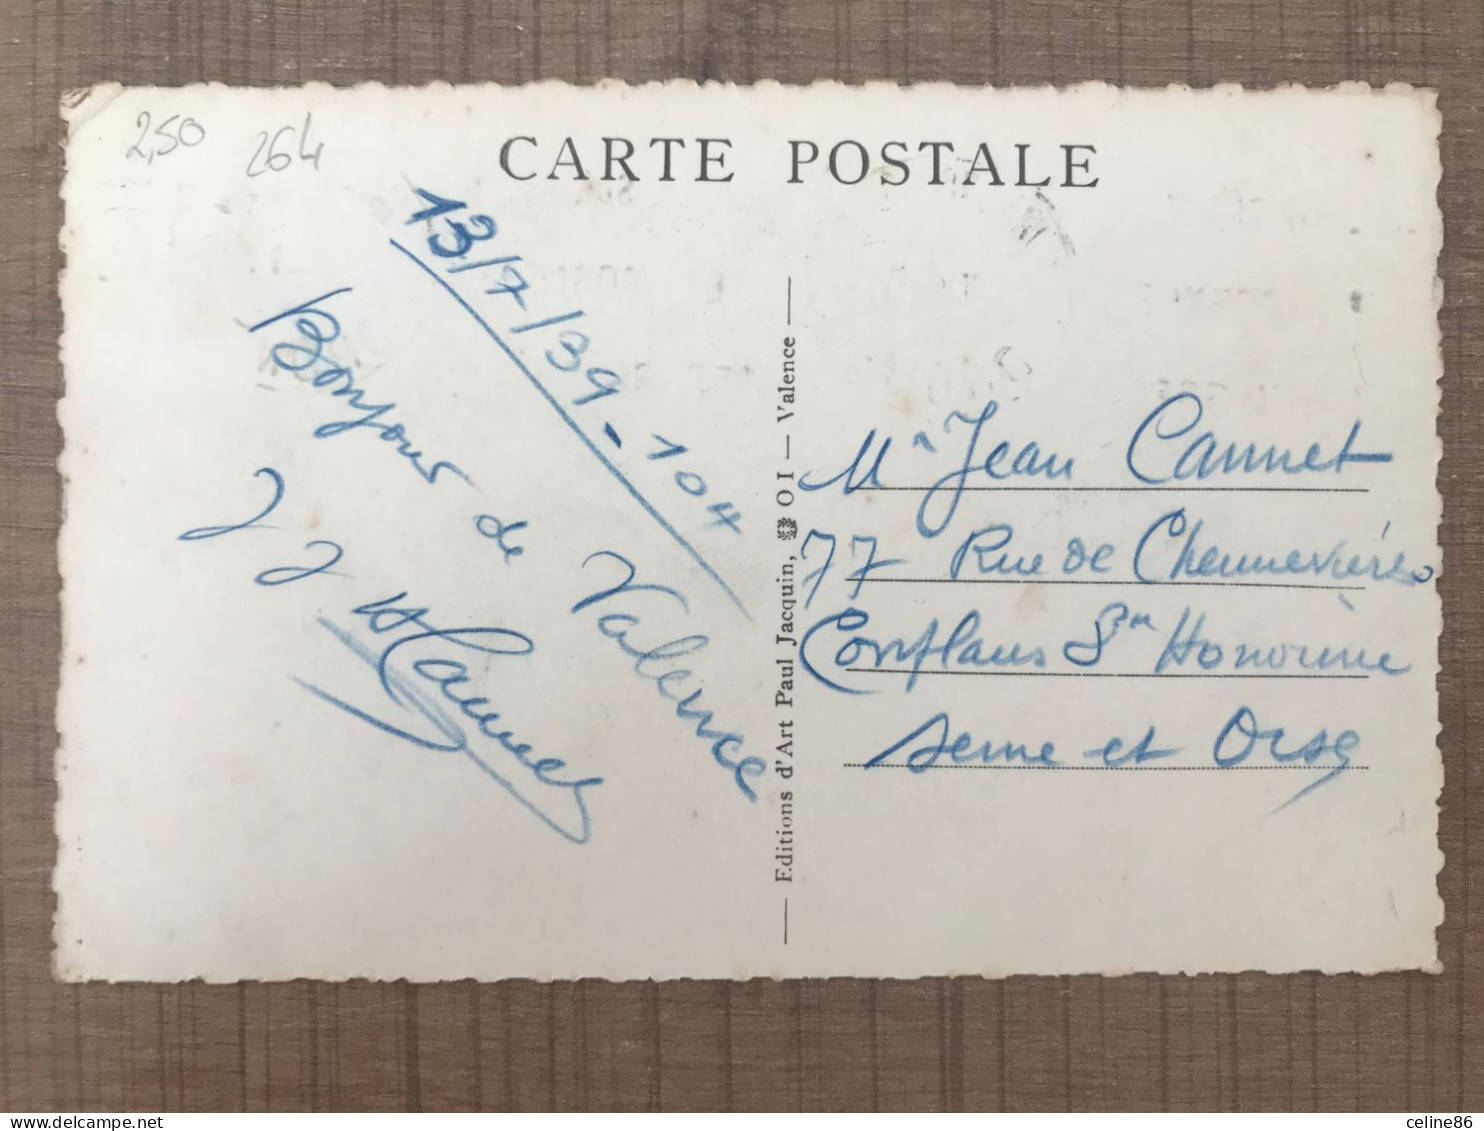 2,50 264
CARTE POSTALE
13/7/39 - 104
Bonjour de Valence
Editions d'Art Paul Jacquin, O I — Valence
Mr Jean Cannet
77 Rue de Chennevières
Conflans Ste Honorine
Seine et Oise
delcampe.net
celine86